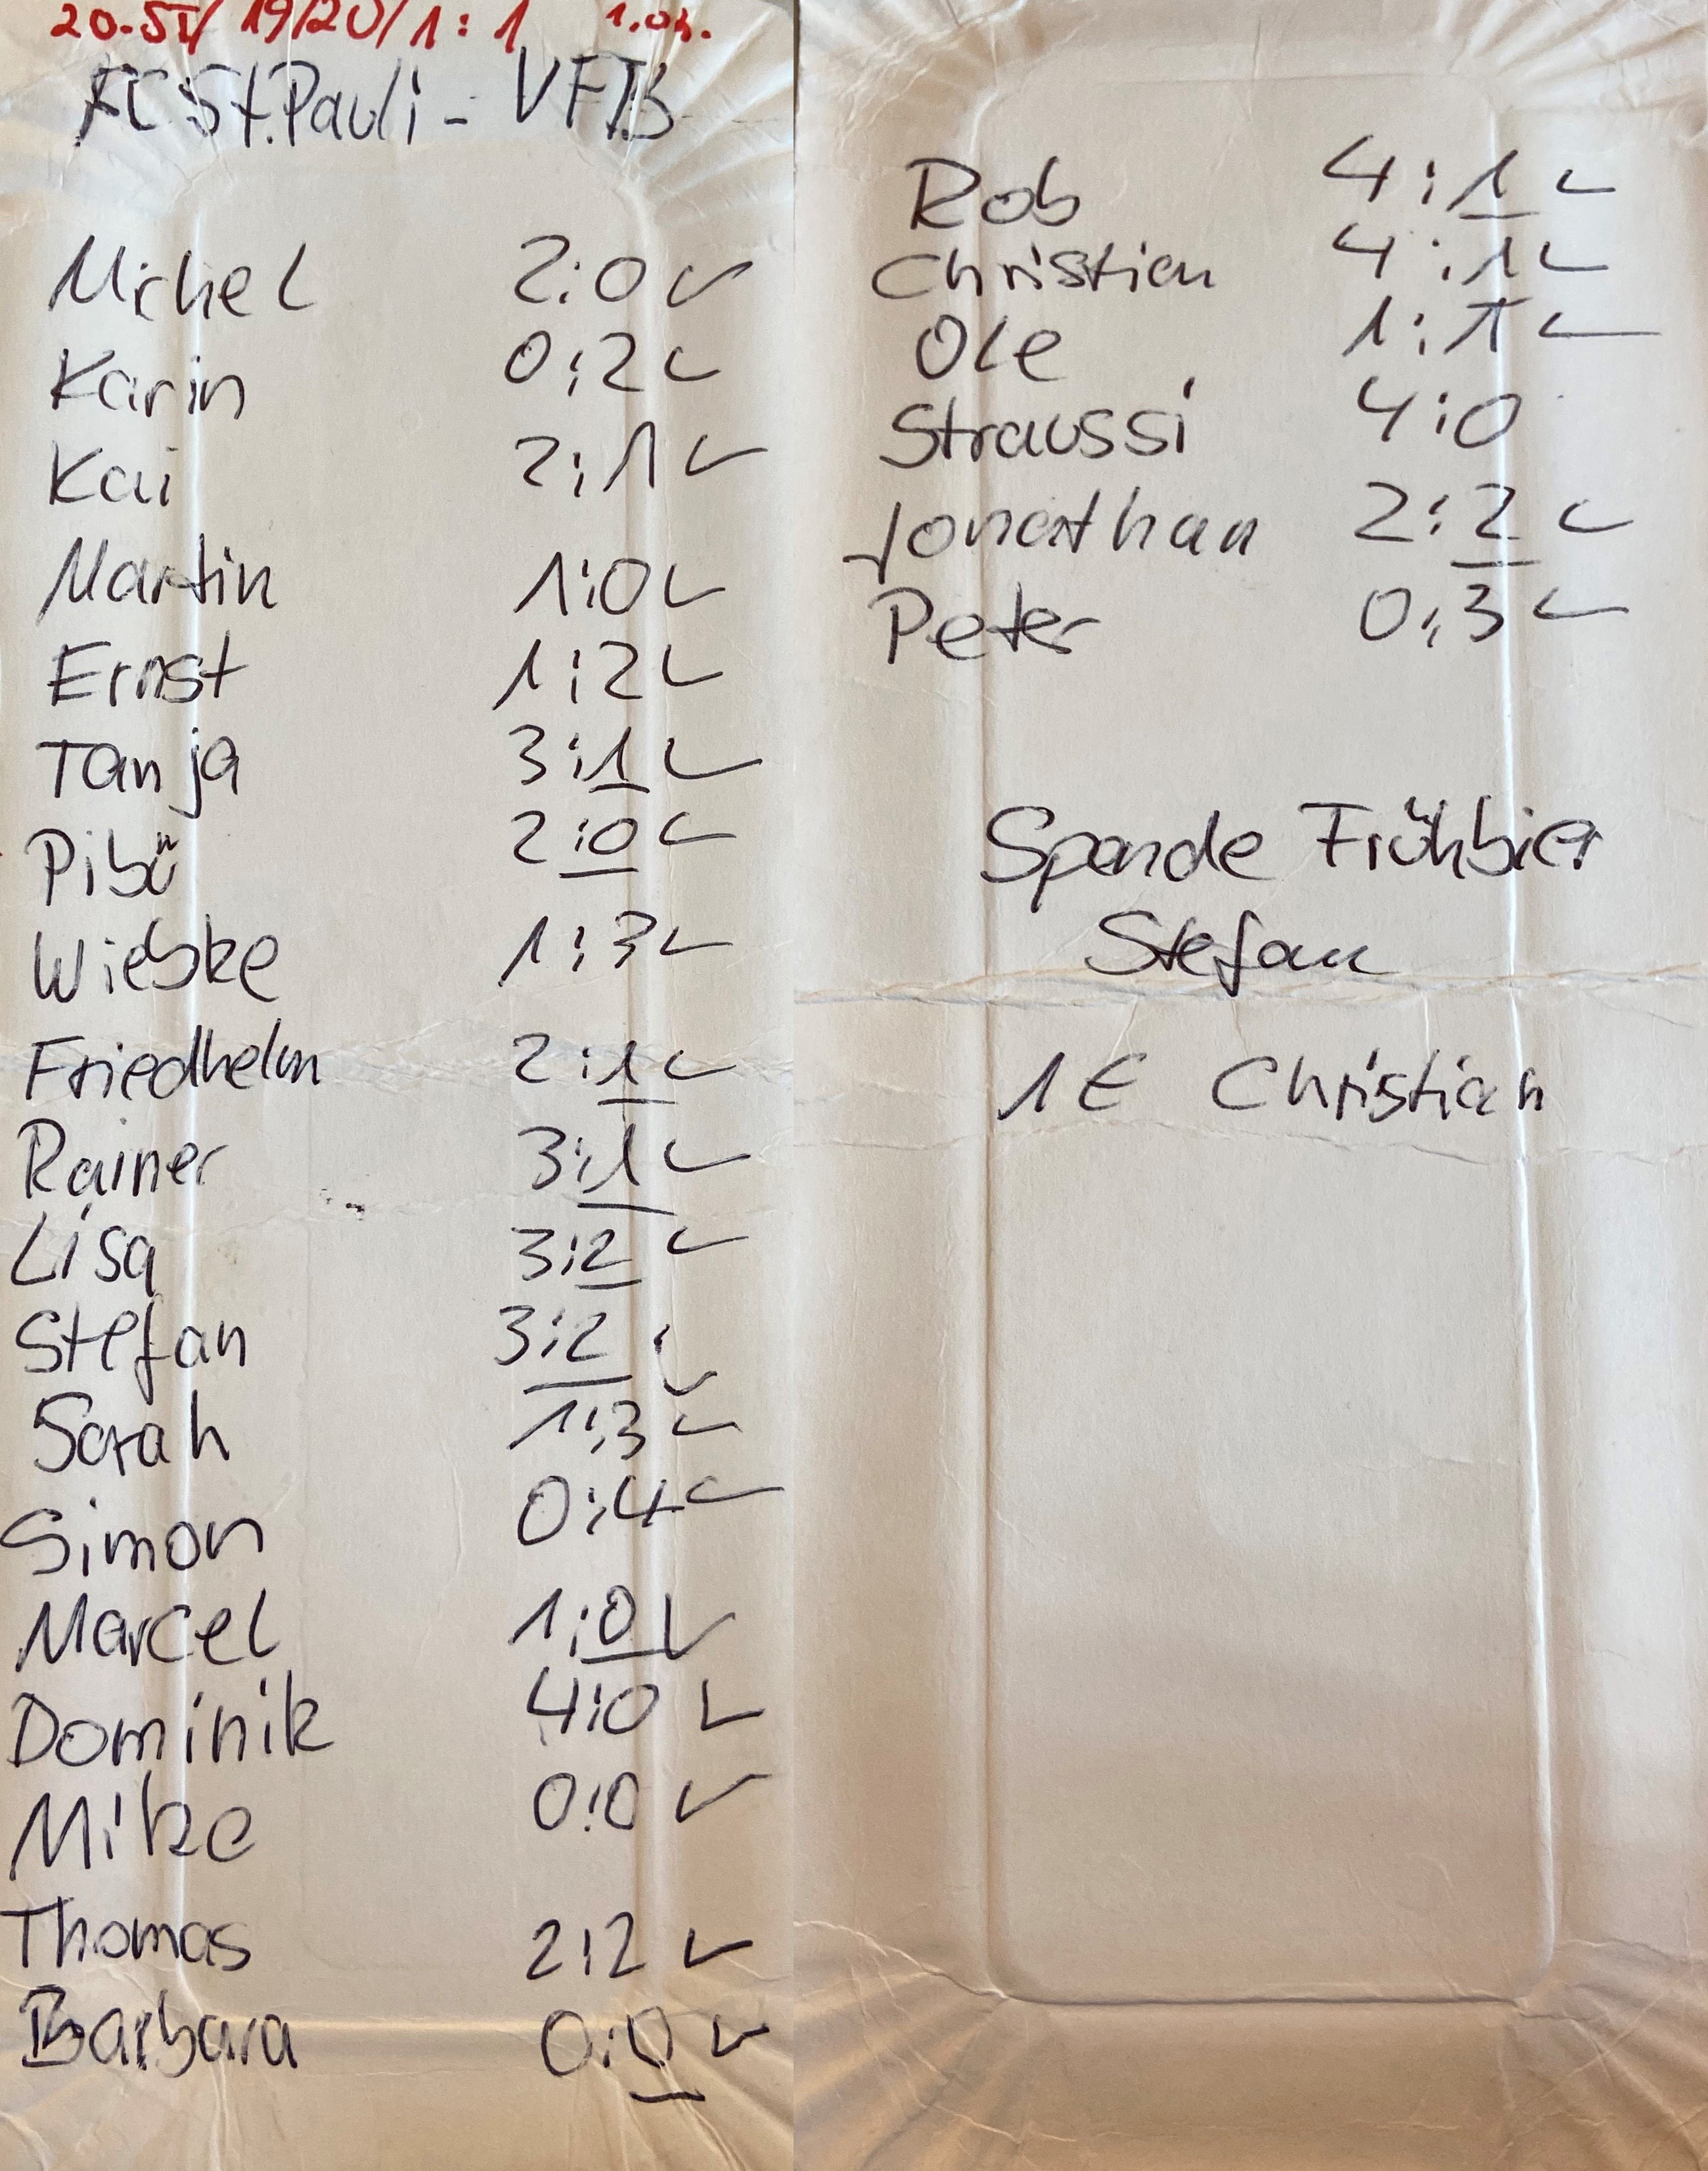 20.ST/ 19/20/ 1:1
FC St. Pauli - VFB
Michel 2:0 ✓
Karin 0:2 ✓
Kai 2:1 ✓
Martin 1:0 ✓
Ernst 1:2 ✓
Tanja 3:1 ✓
Pibü 2:0 ✓
Wiebke 1:3 ✓
Friedhelm 2:1 ✓
Rainer 3:1 ✓
Lisa 3:2 ✓
Stefan 3:2 ✓
Sarah 1:3 ✓
Simon 0:4 ✓
Marcel 1:0 ✓
Dominik 4:0 ✓
Mike 0:0 ✓
Thomas 2:2 ✓
Barbara 0:0 ✓
Rob 4:1 ✓
Christian 4:1 ✓
Ole 1:1 ✓
Straussi 4:0
Jonathan 2:2 ✓
Peter 0:3 ✓
Spende Frühbier
Stefan
1€ Christian